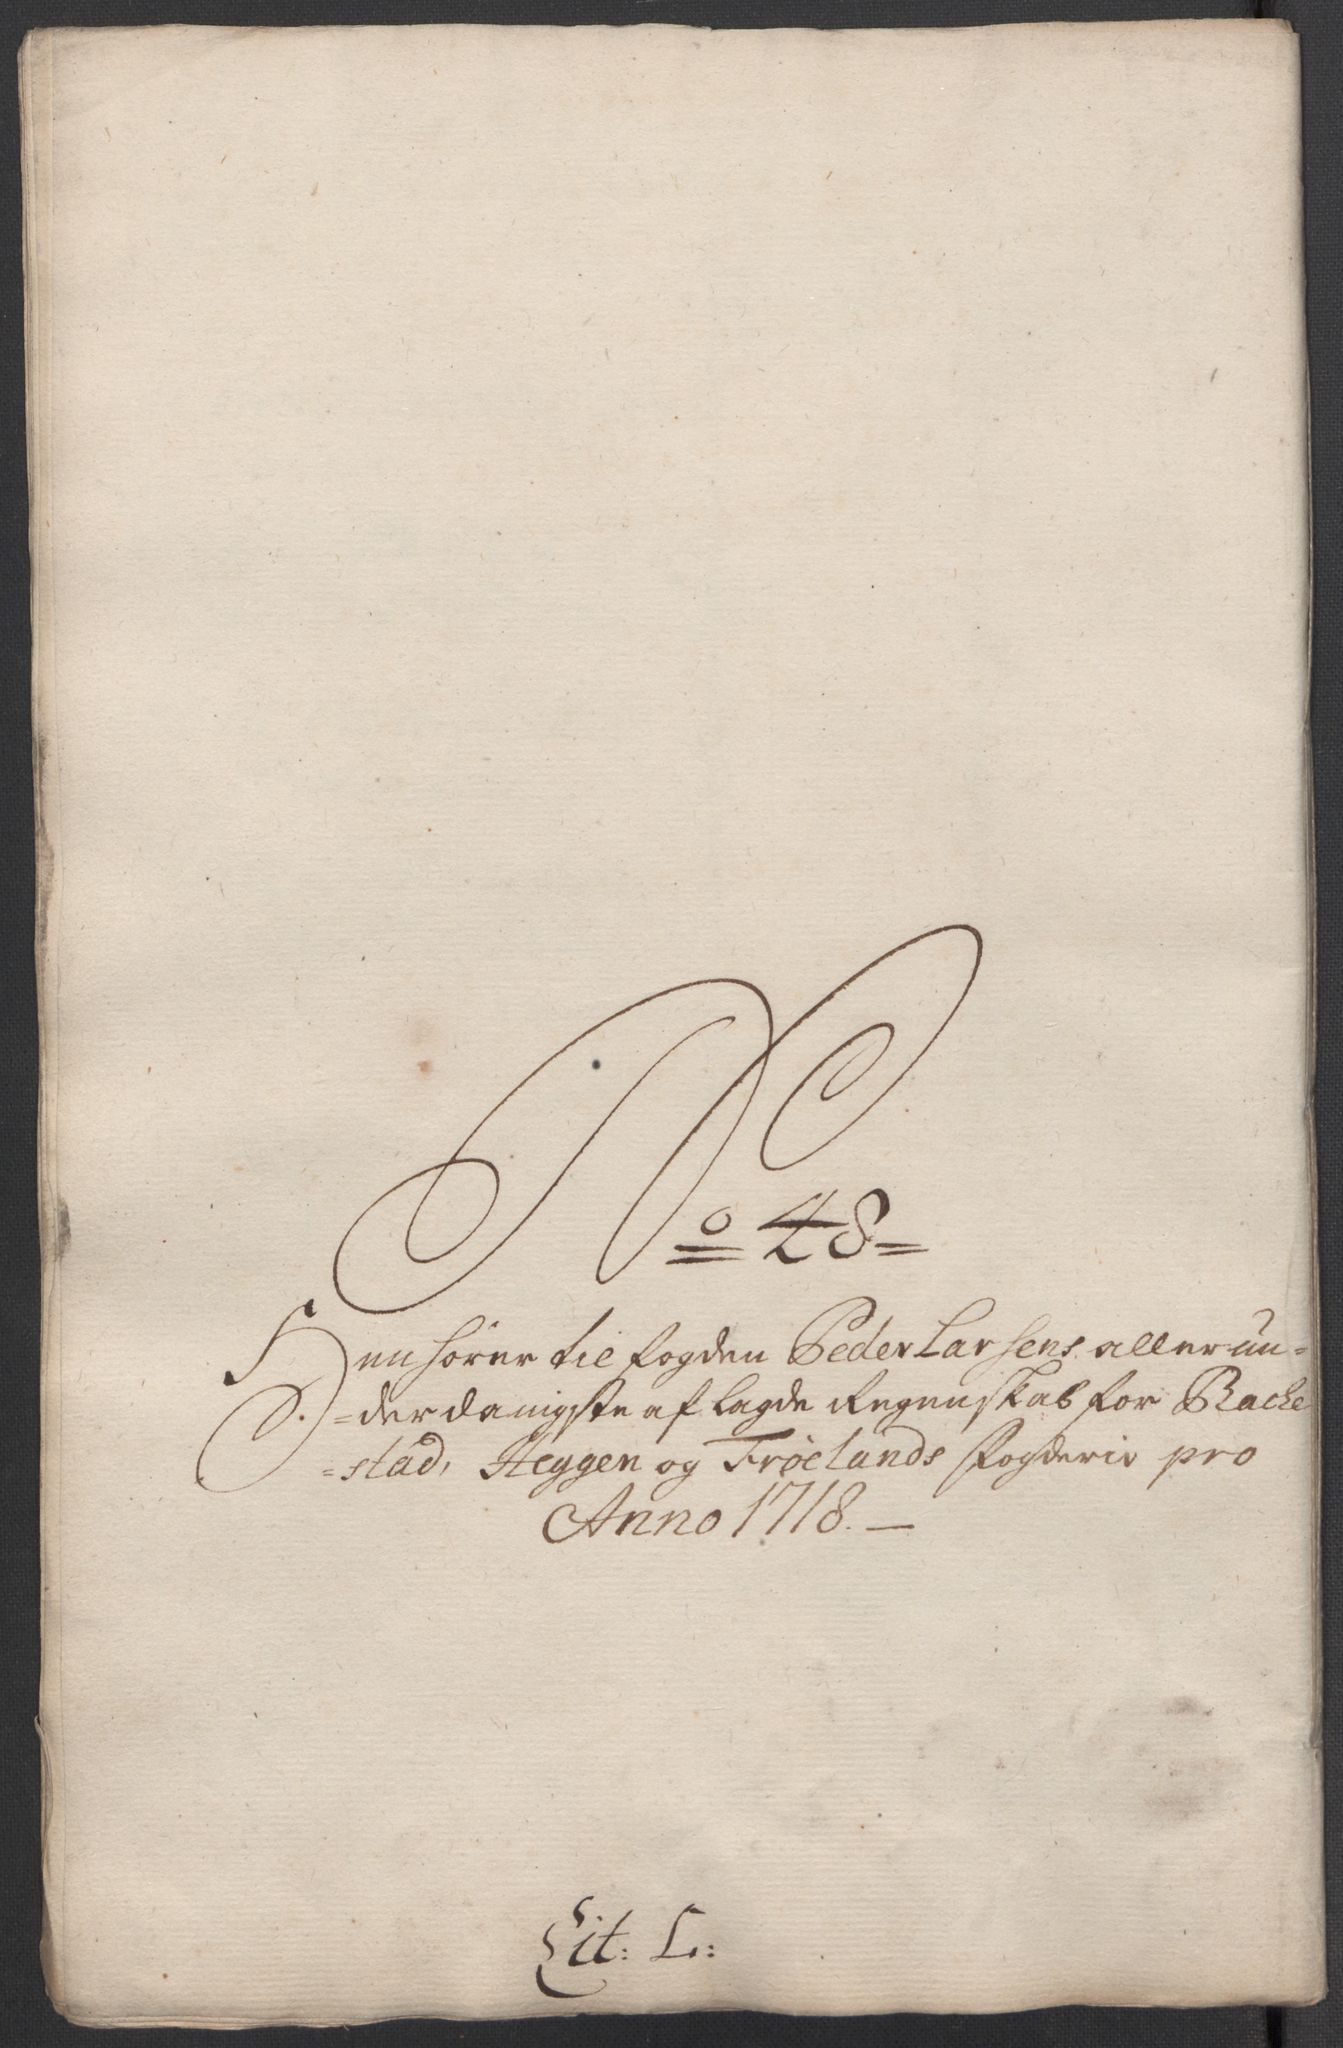 No 48=
Henhører til fogden Peder Larsens allerun=
=derdanigste aflagde Regenskab for Racke
=stad, Heggen og Frøelands fogderie pro
Anno 1718. —
Lit: L: